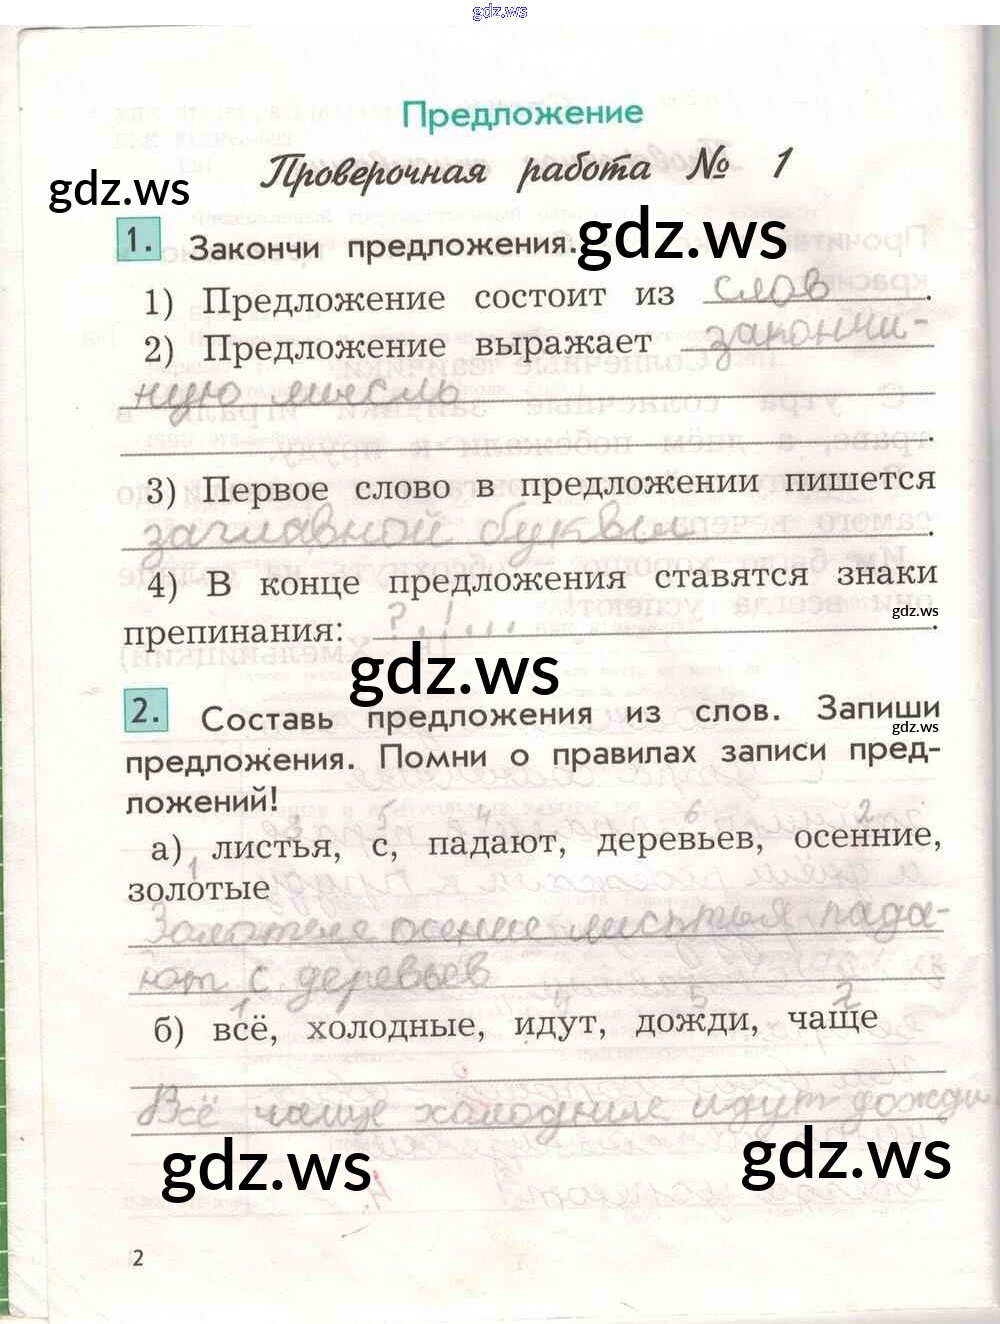 gdz.ws
Предложение
Проверочная работа № 1
gdz.ws
1. Закончи предложения.
gdz.ws
1) Предложение состоит из слов.
2) Предложение выражает закончи-
ную мысль
.
3) Первое слово в предложении пишется
заглавной буквы.
4) В конце предложения ставятся знаки
gdz.ws
препинания: ? . ! ... .
gdz.ws
2. Составь предложения из слов. Запиши
gdz.ws
предложения. Помни о правилах записи пред-
ложений!
3 5 4 6 2
а) листья, с, падают, деревьев, осенние,
1
золотые
Золотые осение листья пада-
ют с деревьев
1 4 5 2
б) всё, холодные, идут, дожди, чаще
Всё чаще холодные идут дожди
gdz.ws
gdz.ws
2